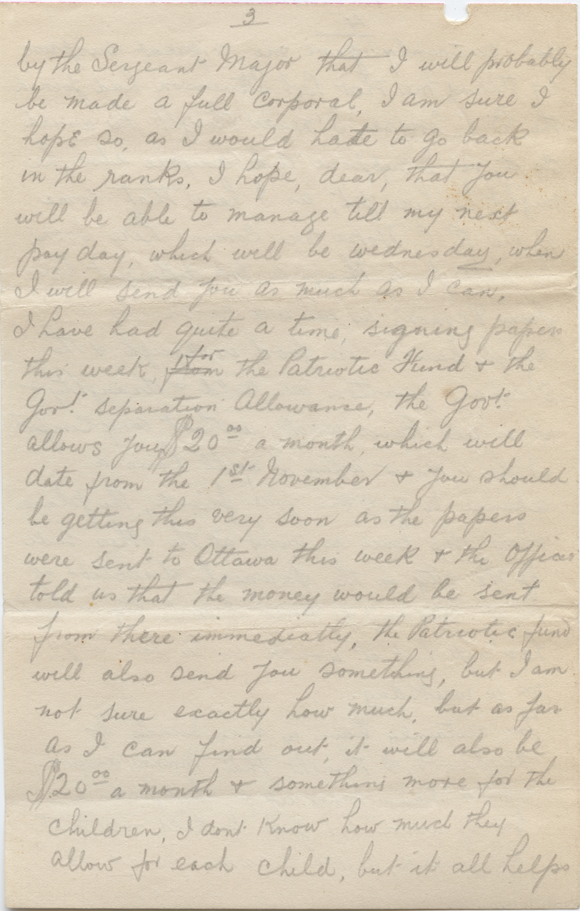 3
by the Sergeant Major that I will probably
be made a full corporal, I am sure I
hope so, as I would hate to go back
in the ranks, I hope, dear, that you
will be able to manage till my next
pay day, which will be wednesday, when
I will send you as much as I can,
I have had quite a time, signing papers
this week, for the Patriotic Fund & the
Gov!. separation Allowance, the Govt.
allows you $20 00 a month, which will
date from the 1st November & you should
be getting this very soon as the papers
were sent to Ottawa this week & the Officer
told us that the money would be sent
from there immediatly, the Patriotic fund
will also send you something, but I am
not sure exactly how much, but as far
as I can find out, it will also be
$20 00 a month & something more for the
children, I dont know how much they
allow for each child, but it all helps